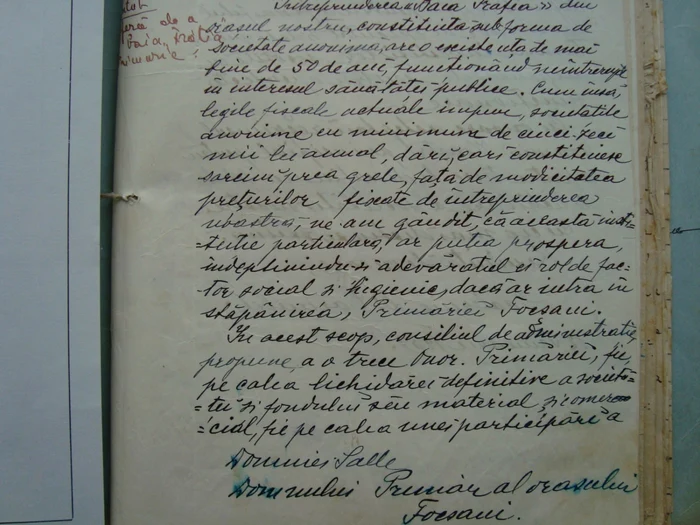 Întreprinderea «Baia Trafia» din
orașul nostru, constituită sub forma de
societate anonimă, are o existență de mai
bine de 50 de ani, funcționând neîntrerupt
în interesul sănătatei publice. Cum însă,
legile fiscale actuale impun, societăților
anonime un minimum de cinci-zeci
mii lei anual, dări, cari constituiesc
sarcini prea grele, față de modicitatea
prețurilor fixate de întreprinderea
noastră, ne-am gândit, că această insti-
=tuție particulară, ar putea prospera,
îndeplinindu-și adevăratul ei rol de fac-
=tor social și higienic, dacă ar intra în
stăpânirea, Primăriei Focșani.
In acest scop, consiliul de administrație,
propune, a o trece Onor. Primării, fie,
pe calea lichidărei definitive a societă=
=ței și fondului său material și comer=
=cial, fie pe calea unei participări a
Domniei Sale
Domnului Primar al orașului
Focșani.
de a
baia,
Primărie